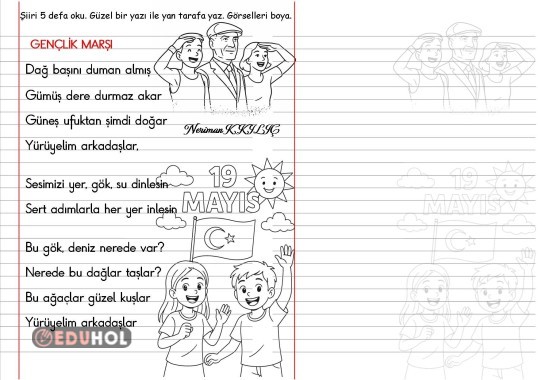 Şiiri 5 defa oku. Güzel bir yazı ile yan tarafa yaz. Görselleri boya.
GENÇLİK MARŞI
Dağ başını duman almış
Gümüş dere durmaz akar
Güneş ufuktan şimdi doğar
Yürüyelim arkadaşlar,
Neriman KKILIÇ
Sesimizi yer, gök, su dinlesin
Sert adımlarla her yer inlesin
19
MAYIS
Bu gök, deniz nerede var?
Nerede bu dağlar taşlar?
Bu ağaçlar güzel kuşlar
Yürüyelim arkadaşlar
EDUHOL
19
MAYIS